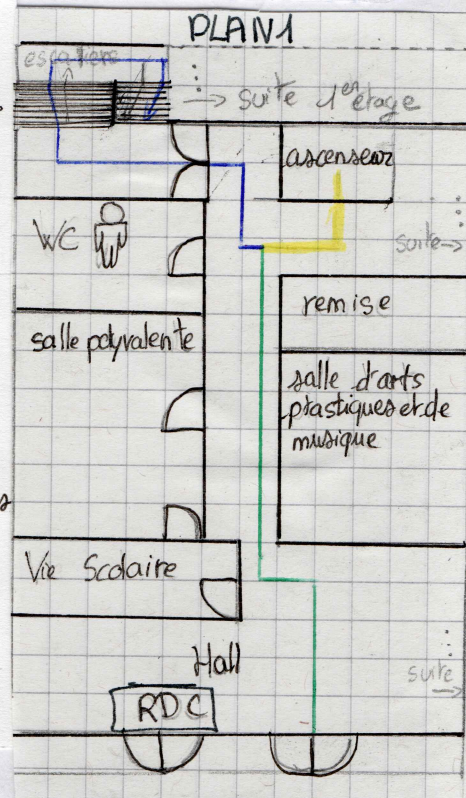 PLAN1
escaliere
suite 1er étage
ascenseur
WC
suite
remise
salle polyvalente
salle d'arts
plastiques et de
musique
Vie Scolaire
Hall
suite
RDC